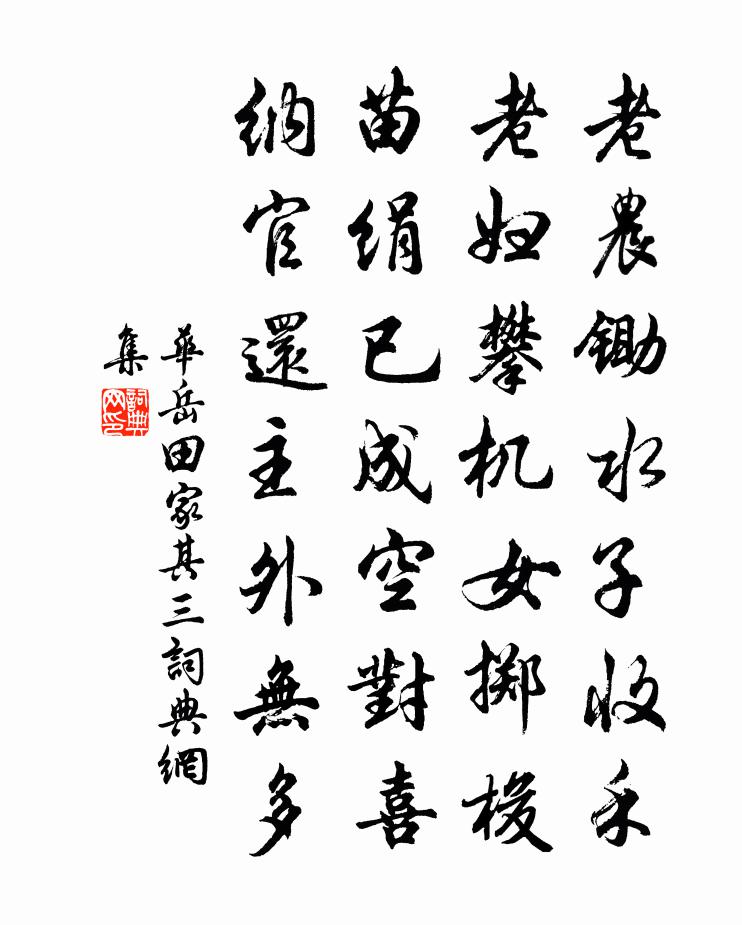 老農鋤水子收禾
老妇攀机女掷梭
苗绢已成空對喜
纳官還主外無多
華岳田家其三詞典網
集
詞典
网印